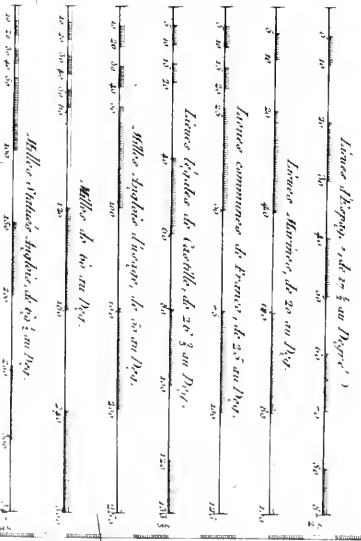 Lieues d'Espag.e, de 17 ½ au Dégré
5 10 20 30 40 50 60 70 80
Lieues Marines, de 20 au Deg.
5 10 20 40 60 80 100
Lieues communes de France, de 25 au Deg.
5 10 15 20 25 50 75 100 125
Lieues légales de Castille, de 26 ⅔ au Deg.
5 10 15 20 40 60 80 100 120 133 ⅓
Milles Anglois d'usage, de 50 au Deg.
10 20 30 40 50 100 150 200 250
Milles de 60 au Deg.
10 20 30 40 50 60 120 180 240 300
Milles Statues Anglois, de 69 ½ au Deg.
10 20 30 40 50 100 150 200 250 300